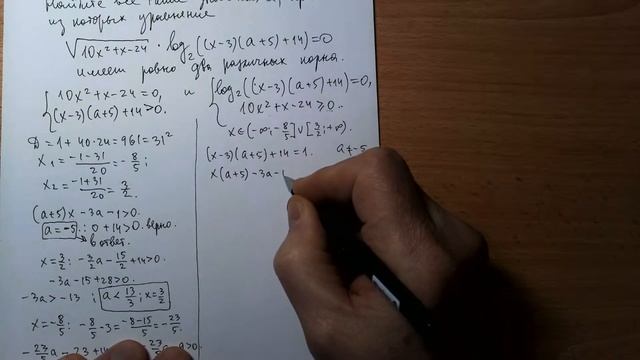 Найдите все такие
из которых уравнение
√(10x²+x-24) · log₂((x-3)(a+5)+14)=0
имеет ровно два различных корня.
{ 10x²+x-24=0,
(x-3)(a+5)+14>0.
D=1+40·24=961=31²
x₁=(-1-31)/20=-8/5;
x₂=(-1+31)/20=3/2.
(a+5)x-3a-1>0.
a=-5: 0+14>0. верно.
в ответ.
x=3/2: -3/2a-15/2+14>0.
-3a-15+28>0.
-3a>-13; a<13/3; x=3/2
x=-8/5: -8/5-3=(-8-15)/5=-23/5.
-23/5a-23+14
и { log₂((x-3)(a+5)+14)=0,
10x²+x-24≥0.
x∈(-∞;-8/5]∪[3/2;+∞).
(x-3)(a+5)+14=1. a≠-5
x(a+5)-3a-